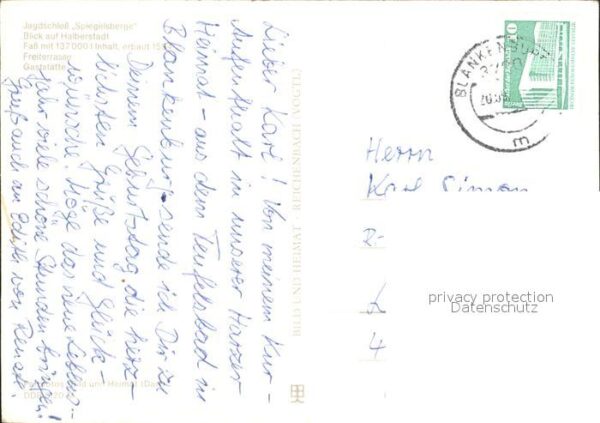 Jagdschloß „Spiegelsberge"
Blick auf Halberstadt
Faß mit 137 000 l Inhalt, erbaut
Freiterrasse
Gaststätte
Lieber Karl! Von meinem Kur-
Aufenthalt in unserer Harzer
Heimat - aus dem Teufelsbad in
Blankenburg, sende ich Dir zu
Deinem Geburtstag die herz-
lichsten Grüße und Glück-
wünsche. Möge das neue Lebens-
jahr viele schöne Stunden bringen!
Gruß auch an Edith von Renate.
BILD UND HEIMAT REICHENBACH (VOGTL)
Bild und Heimat
BLANKENBURG
m
10
DDR
Herrn
Karl Simon
privacy protection
Datenschutz